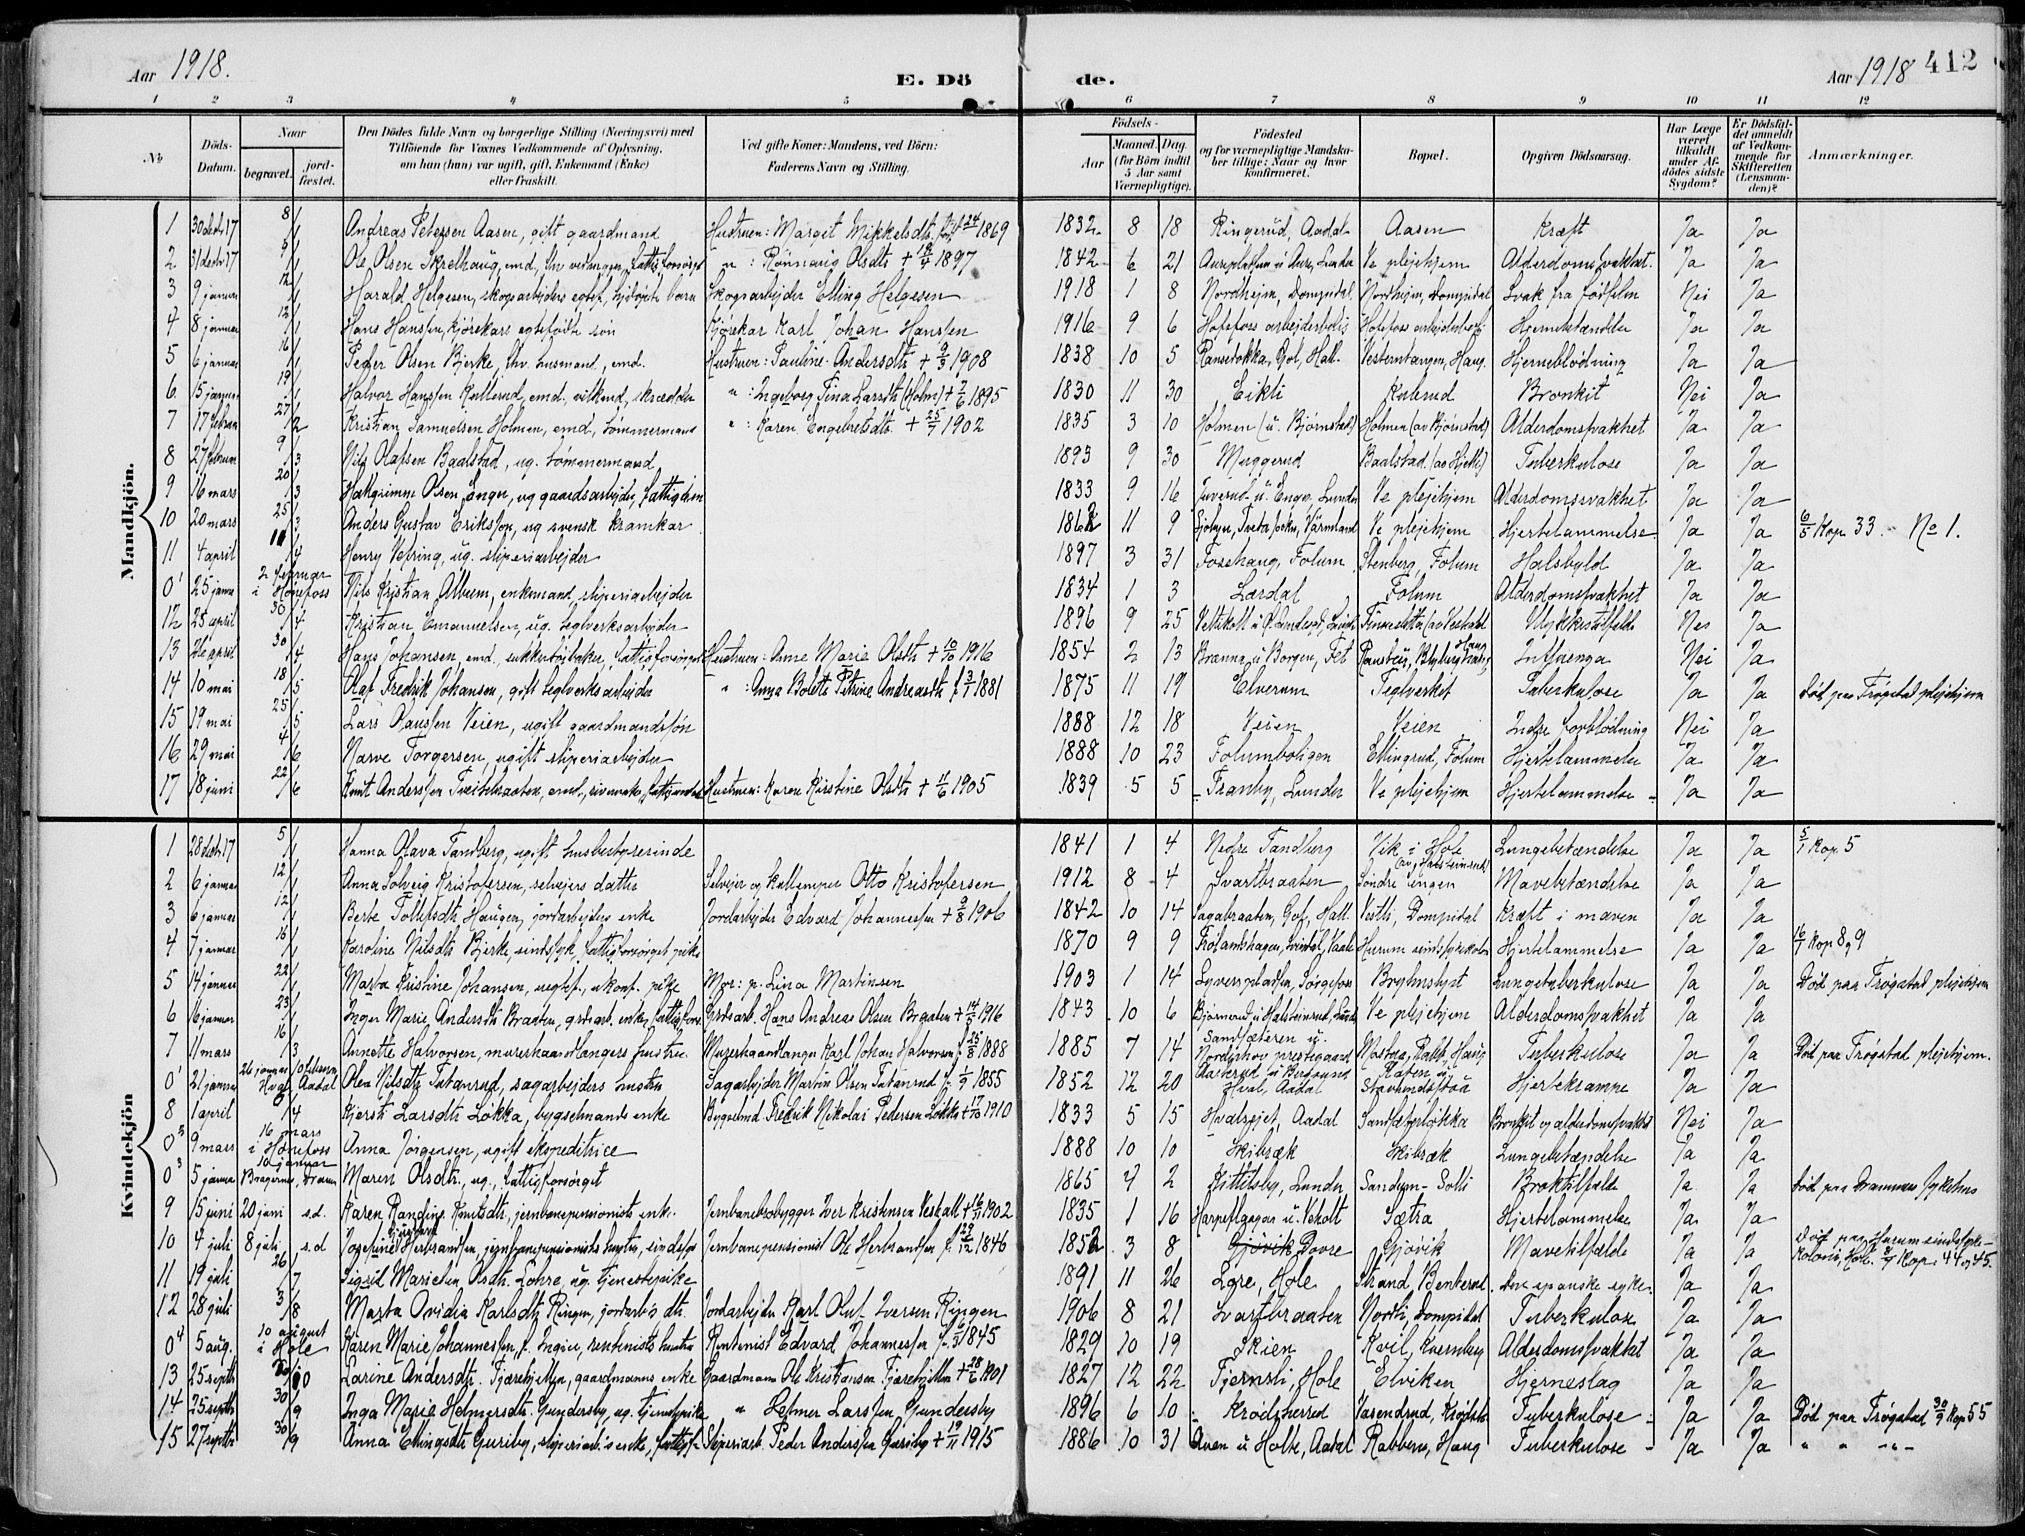 Aar 1918. E. Döde. Aar 1918 412
1 2 3 4 5 6 7 8 9 10 11 12
No
Döds-Datum.
Naar begravet. jordfæstet.
Den Dödes fulde Navn og borgerlige Stilling (Næringsvei) med Tilföiende for Voxnes Vedkommende af Oplysning, om han (hun) var ugift, gift, Enkemand (Enke) eller fraskilt.
Ved gifte Koner: Mandens, ved Börn: Faderens Navn og Stilling.
Födsels- Aar Maaned. Dag. (for Börn indtil 5 Aar samt Værnepligtige).
Födested og for værnepligtige Mandskaber tillige: Naar og hvor konfirmeret.
Bopæl.
Opgiven Dödsaarsag.
Har Læge været tilkaldt under Afdödes sidste Sygdom?
Er Dödsfaldet anmeldt af Vedkommende for Skifteretten (Lensmanden)?
Anmærkninger.
Mandkjön.
1 30 decbr 17 8/1 Andreas Petersen Aasen, gift gaardmand Hustruen: Margit Mikkelsdtr. 1869 1832 8 18 Ringerud, Aadal Aasen Kræft Ja Ja
2 31 decbr 17 5/1 Ole Olsen Skrelhaug, emd., fattigforsørget " : Rønnaug Olsdtr + 1897 1842 6 21 Ve plejehjem Alderdomssvakhet. Ja Ja
3 9 januar 12/1 Harald Helgesen, skogsarbejders egtef. hjdøpte barn Skogsarbejder Elling Helgesen 1918 1 8 Nordhejm, Dompidal Nordhejm, Dompidal Svak fra fødselen Nei Ja
4 8 januar 12/1 Hans Hanssen, kjørekars egtefødte søn Kjørekar Karl Johan Hanssen 1916 9 6 Hofsfoss arbejderbolig Hofsfoss arbejderbolig Hjernebetændelse Ja Ja
5 6 januar 16/1 Peder Olsen Bjerke, fhv. husmand, emd. Hustruen: Pauline Andersdtr + 1908 1838 10 5 Gol, Hall. Vesterntangen, Haug. Hjerneblødning Ja Ja
6 15 januar 19/1 Halvor Hanssen Kullerud, emd., skrædder " : Ingeborg Tina Larsdtr (Holm) + 1895 1830 11 30 Eikli Kulerud Bronkit Nei Ja
7 17 februar 27/2 Kristian Samuelsen Holmen, emd, tømmermand " : Karen Engebretsdtr. + 25/7 1902 1835 3 10 Holmen (u. Bjørnstad) Holmen (av Bjørnstad) Alderdomssvakhet Ja Ja
8 27 februar 9/3 Nils Olafsen Baalstad, ug. tømmermand 1893 9 30 Muggerud Baalstad (av Hjelli) Tuberkulose Ja Ja
9 16 mars 20/3 Halgrimme Olsen Enger, ug gaardsarbejder, fattiglem 1833 9 16 Juverud u. Enge, Lunder Ve plejehjem Alderdomssvakhet Ja Ja
10 20 mars 25/3 Anders Gustav Eriksson, ug svensk kramkar 1862 11 9 Värmland Ve plejehjem Hjertelammelse Ja Ja 6/5 Kop. 33. No 1.
11 4 april 11/4 Henry Vebring, ug. sliperiarbejder 1897 3 31 Fosshaug, Folum Stenberg, Folum Halsbyld Ja Ja
0¹ 25 januar 2 februar i Hønefoss Nils Kristian Album, enkemand, sliperiarbejder 1834 1 3 Lærdal Folum Alderdomssvakhet Ja Ja
12 25 april 30/4 Kristian Emanuelsen, ug. teglverksarbejder 1896 9 25 Ulykkestilfelde Nei Ja
13 26 april 30/4 Hans Johansen, emd., fattigforsørget Hustruen: Anne Marie Olsdtr + 1916 1854 2 13 Brænna u Borgen, Fet Haug Influenza Nei Ja
14 10 mai 18/5 Olaf Fredrik Johansen, gift teglverksarbejder " : Anna Bolette Petrine Andreasdtr f. 3/1 1881 1875 11 19 Elverum Teglverket Tuberkulose Ja Ja Død paa Trøgstad plejehjem
15 19 mai 25/5 Lars Olaussen Veien, ugift gaardmandssøn 1888 12 18 Veien Veien Indre forblødning Nei Ja
16 29 mai 4/6 Narve Torgersen, ugift sliperiarbejder 1888 10 23 Folumboligen Ellingrud, Folum Hjertelammelse Ja Ja
17 18 juni 22/6 Knut Anderssen Tveitebraaten, emd., Hustruen: Karen Kirstine Olsdtr + 1905 1839 5 5 Tranby, Lunder Ve plejehjem Hjertelammelse Ja Ja
Kvindekjön
1 28 decbr 17 5/1 Hanna Olava Tandberg, ugift husbestyrerinde 1841 1 4 Nedre Tandberg Vik i Hole Lungebetændelse Ja Ja 5/1 Kop. 5
2 6 januar 12/1 Anna Solveig Kristofersen, selvejers datter Selvejer og Otto Kristofersen 1912 8 4 Svartbraaten Søndre engen Mavebetændelse Ja Ja
3 6 januar 12/1 Berte Tollefsdtr Haugen, jordarbejders enke Jordarbejder Edvard Johannessen + 1906 1842 10 14 Sagabraaten, Gol, Hall. Vestli, Dompidal Kræft i maven Ja Ja
4 7 januar 16/1 Karoline Nilsdtr Bjerke, sindssyk, fattigforsørget pike 1870 9 9 Hurum sindssykekoloni Hjertelammelse Ja Ja 16/1 Kop 8, 9
5 14 januar 22/1 Marta Kristine Johansen, uegtef., ukonf. pike Mor: p. Lina Martinsen 1903 1 14 Brylmslyst Lungetuberkulose Ja Ja Død paa Trøgstad plejehjem
6 16 januar 23/1 Inger Marie Andersdtr Braaten, grdsarb. enke, fattigfors. Grdsarb. Hans Andreas Olsen Braaten + 1916 1843 10 6 Ve plejehjem Alderdomssvakhet Ja Ja
7 11 mars 16/3 Annette Halvorsen, murerhaandlangers hustru Murerhaandlanger Karl Johan Halvorsen f. 25/8 1888 1885 7 14 Sandsæteren u. Nordrehov prestegaard Haug Tuberkulose Ja Ja Død paa Trøgstad plejehjem.
0¹ 21 januar 26 januar Hval Aadal Olea Nilsdtr Tutanrud, sagarbejders hustru Sagarbejder Martin Olsen Tutanrud f. 1/9 1855 1852 12 20 Hval, Aadal Hjertekrampe Ja Ja
8 1 april 8/4 Kjersti Larsdtr Løkka, bygselmands enke Bygselmd. Fredrik Nikolai Pedersen Løkka + 1910 1833 5 15 Hvalsejet, Aadal Sandsæterløkka Bronkit og alderdomssvakhet Nei Ja
0² 9 mars 16 mars i Hønefoss Anna Jørgensen, ugift ekspeditrice 1888 10 10 Skibræk Skibræk Lungebetændelse Ja Ja
0³ 5 januar 10 januar Bragernes, Dramm Maren Olsdtr., ug., fattigforsørget 1865 4 2 Kittilsby, Lunder Sandum - Solli Broktilfælde Ja Ja Død paa Drammens sykehus
9 15 juni 20 juni s.d. Karen Randine Knutsdtr, jernbanepensionists enke. Jernbanebrobygger Iver Kristensen Veskolt + 1902 1835 1 16 Harpeflaggan u. Vekolt Sætra Hjertelammelse Ja Ja
10 4 juli 8 juli s.d Josefine Gustava Herbrandsen, jernbanepensionists hustru, sindssyk Jernbanepensionist Ole Herbrandsen f. 29/12 1846 1852 3 8 Gjøvik Dovre Gjøvik Mavetilfælde Ja Ja Død paa Hurum sindssykekoloni, Kop. 44 og 45.
11 19 juli 26/7 Sigrid Marielen Olsdtr. Lohre, ug. tjenestepike 1891 11 26 Lore, Hole Strand, Benterud Den spanske syke. Ja Ja
12 28 juli 3/8 Marta Ovidia Karlsdtr Ringen, jordarb's dtr. Jordarbejder Karl Oluf Iversen Ringen 1906 8 21 Svartbraaten Nordli, Dompidal Tuberkulose Ja Ja
0⁴ 5 aug. 10 august i Hole Karen Marie Johannessen, f. Ingier, rentenists hustru Rentenist Edvard Johannessen f. 1845 1829 10 19 Skien Kvil, Kvernberg Alderdomssvakhet Ja Ja
13 25 septbr Larine Andersdtr. Tjærebjitten, gaardmanns enke Gaardmann Ole Kristiansen Tjærebjitten + 1901 1827 12 22 Tjernsli, Hole Elviken Hjerneslag Ja Ja
14 25 septbr 30/9 Inga Marie Helmersdtr. Gundersby, ug. tjenestepike " Helmer Larssen Gundersby 1896 6 10 Krødsherred Vasendrud, Krødsh. Tuberkulose Ja Ja Død paa Trøgstad 30/9 Kop 55
15 27 septbr 30/9 Anna Ellingsdtr Guriby, sliperiarb.'s enke, Sliperiarb. Peder Anderssen Guriby + 1915 1886 10 31 Aven u Holte, Aadal Rabberu, Haug Tuberkulose Ja Ja " " - " -